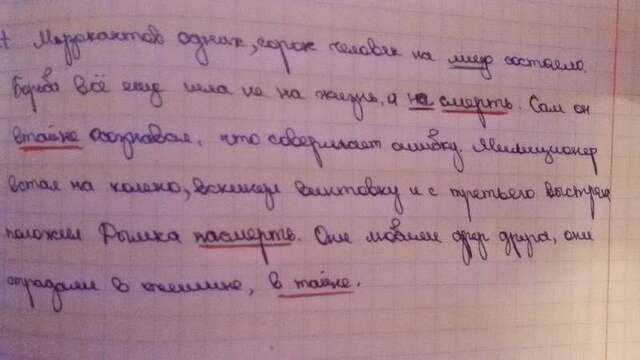 Музыкантов однак, сорок человек на лицо состояло.
Борьба всё ещё шла не на жизнь, а на смерть. Сам он
втайне осознавал, что совершает ошибку. Милиционер
встал на колено, вскинул винтовку и с третьего выстрела
положил Рыжика насмерть. Они любили друг друга, они
страдали в тишине, в тайне.